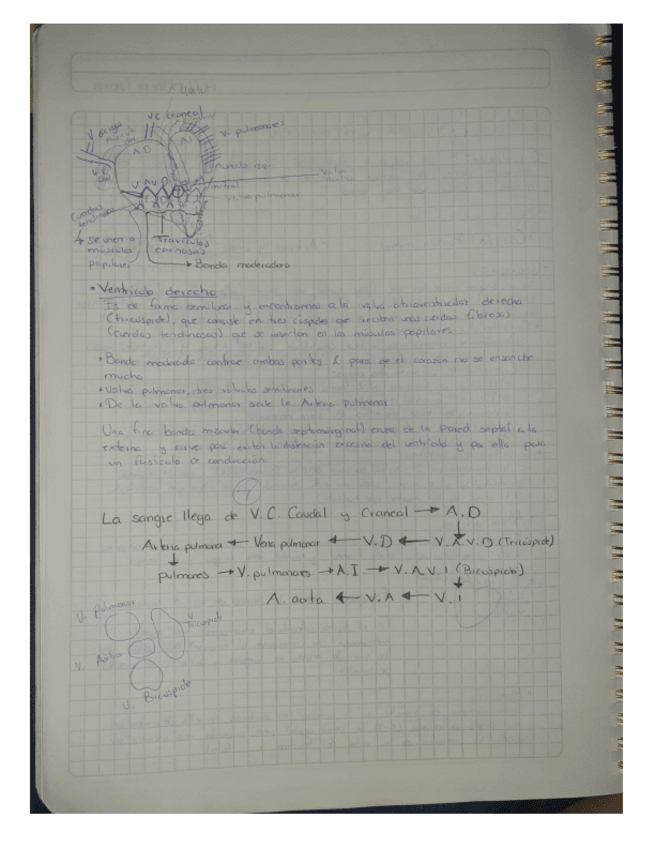 V.C. craneal
V. pulmonares
V. aciga
A.D
A.I
V.AV.D
mitral
Valva pulmonar
Cuerdas tendinosas
↳ se unen a músculos papilares
Trabiculas carnosas
→ Banda moderadora
• Ventriculo derecho
Es de forma semilunar y encontramos a la valva atrioventricular derecha
(tricúspide), que consiste en tres cúspides que reciben unas cuerdas fibrosas
(cuerdas tendinosas) que se insertan en los músculos papilares.
• Banda moderada contrae ambas partes & para que el corazón no se ensanche
mucho
• Valva pulmonar, tres valvulas semilunares
• De la valva pulmonar sale la Arteria pulmonar
Una fina banda muscular (banda septomarginal) cruza de la pared septal a la
externa y sirve para evitar la distención excesiva del ventriculo y por ello pasa
un fasículo de conducción
La sangre llega de V.C. Caudal y Craneal → A.D
Arteria pulmonar ← Vena pulmonar ← V.D ← V.A V.D (Tricúspide)
pulmones → V. pulmonares → A.I → V.A.V.I (Bicuspide)
A. aorta ← V.A ← V.I
V. pulmonar
V. Tricuspide
V. Aortica
V. Bicuspide